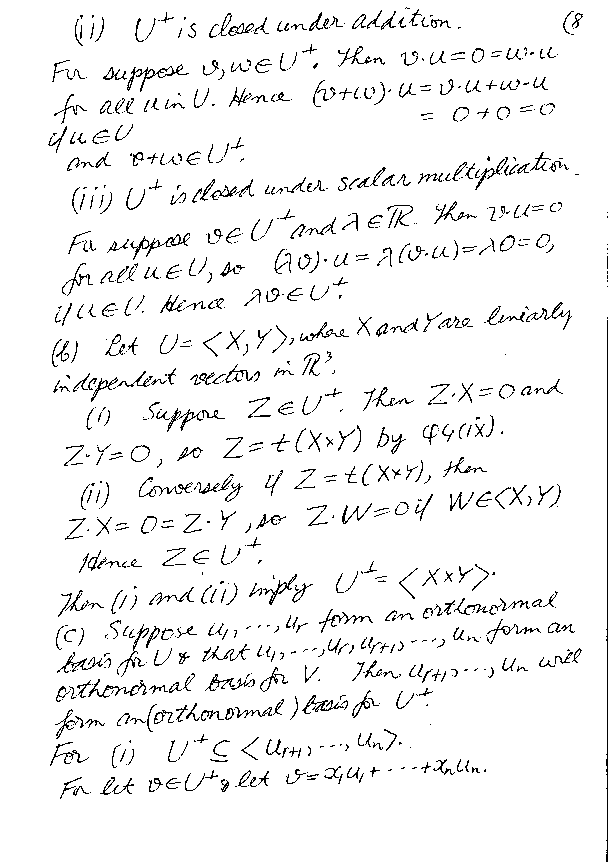 (ii) U⊥ is closed under addition. (8
For suppose v, w ∈ U⊥. Then v·u = 0 = w·u
for all u in U. Hence (v+w)·u = v·u + w·u
= 0 + 0 = 0
if u ∈ U
and v+w ∈ U⊥.
(iii) U⊥ is closed under scalar multiplication.
For suppose v ∈ U⊥ and λ ∈ ℝ. Then v·u = 0
for all u ∈ U, so (λv)·u = λ(v·u) = λ0 = 0,
if u ∈ U. Hence λv ∈ U⊥.
(b) Let U = <X, Y>, where X and Y are linearly
independent vectors in ℝ³.
(i) Suppose Z ∈ U⊥. Then Z·X = 0 and
Z·Y = 0, so Z = t(X×Y) by Q4(ix).
(ii) Conversely if Z = t(X×Y), then
Z·X = 0 = Z·Y, so Z·W = 0 if W ∈ <X, Y)
Hence Z ∈ U⊥.
Then (i) and (ii) imply U⊥ = <X×Y>.
(c) Suppose u₁, ..., uᵣ form an orthonormal
basis for U & that u₁, ..., uᵣ, uᵣ₊₁, ..., uₙ form an
orthonormal basis for V. Then uᵣ₊₁, ..., uₙ will
form an (orthonormal) basis for U⊥.
For (i) U⊥ ⊆ <uᵣ₊₁, ..., uₙ>.
For let v ∈ U⊥ & let v = x₁u₁ + ... + xₙuₙ.